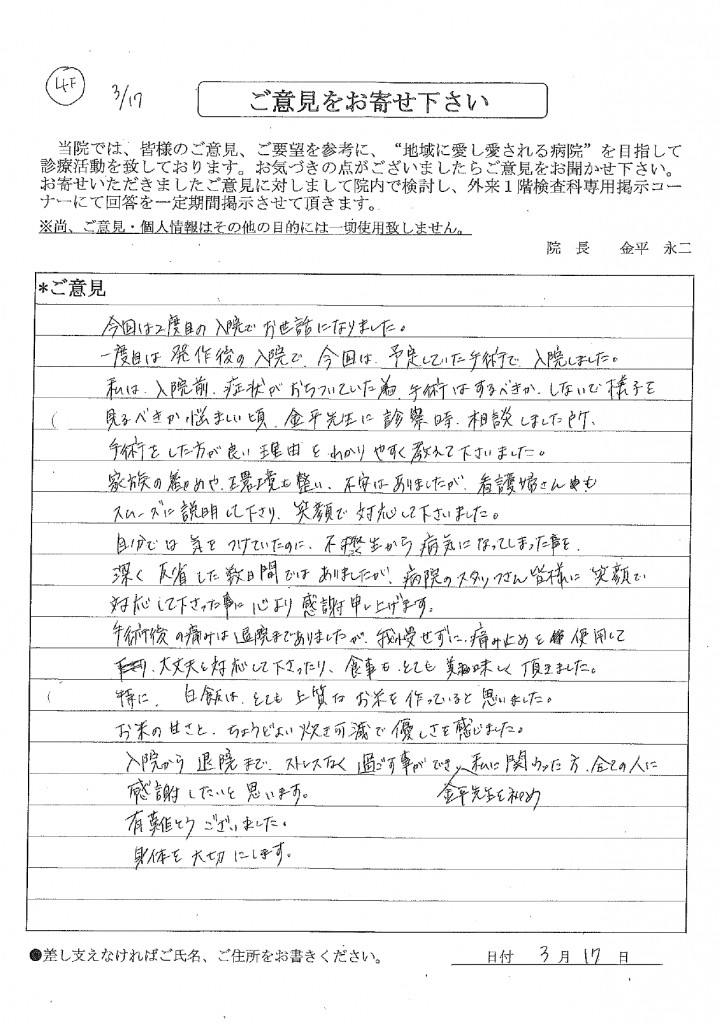 4F
3/17
ご意見をお寄せ下さい
当院では、皆様のご意見、ご要望を参考に、“地域に愛し愛される病院”を目指して
診療活動を致しております。お気づきの点がございましたらご意見をお聞かせ下さい。
お寄せいただきましたご意見に対しまして院内で検討し、外来１階検査科専用掲示コー
ナーにて回答を一定期間掲示させて頂きます。
※尚、ご意見・個人情報はその他の目的には一切使用致しません。
院　長　　金平　永二
*ご意見
今回は2度目の入院でお世話になりました。
一度目は発作後の入院で、今回は、予定していた手術で入院しました。
私は、入院前、症状がおちついていた為、手術はするべきか、しないで様子を
見るべきか悩ましい頃、金平先生に診察時、相談しました所、
手術をした方が良い理由をわかりやすく教えて下さいました。
家族の薦めや、環境も整い、不安はありましたが、看護婦さんも
スムーズに説明して下さり、笑顔で対応して下さいました。
自分では気をつけていたのに、不摂生から病気になってしまった事を、
深く反省した数日間ではありましたが、病院のスタッフさん皆様に笑顔で
対応して下さった事に心より感謝申し上げます。
手術後の痛みは退院までありましたが、我慢せずに、痛み止めを使用して
大丈夫と対応して下さったり、食事も、とても美味しく頂きました。
特に、白飯は、とても上質なお米を作っていると思いました。
お米の甘さと、ちょうどよい炊き加減で優しさを感じました。
入院から退院まで、ストレスなく過ごす事ができ、私に関わった方、全ての人に
感謝したいと思います。　金平先生を初め
有難とうございました。
身体を大切にします。
●差し支えなければご氏名、ご住所をお書きください。
日付　3月17日